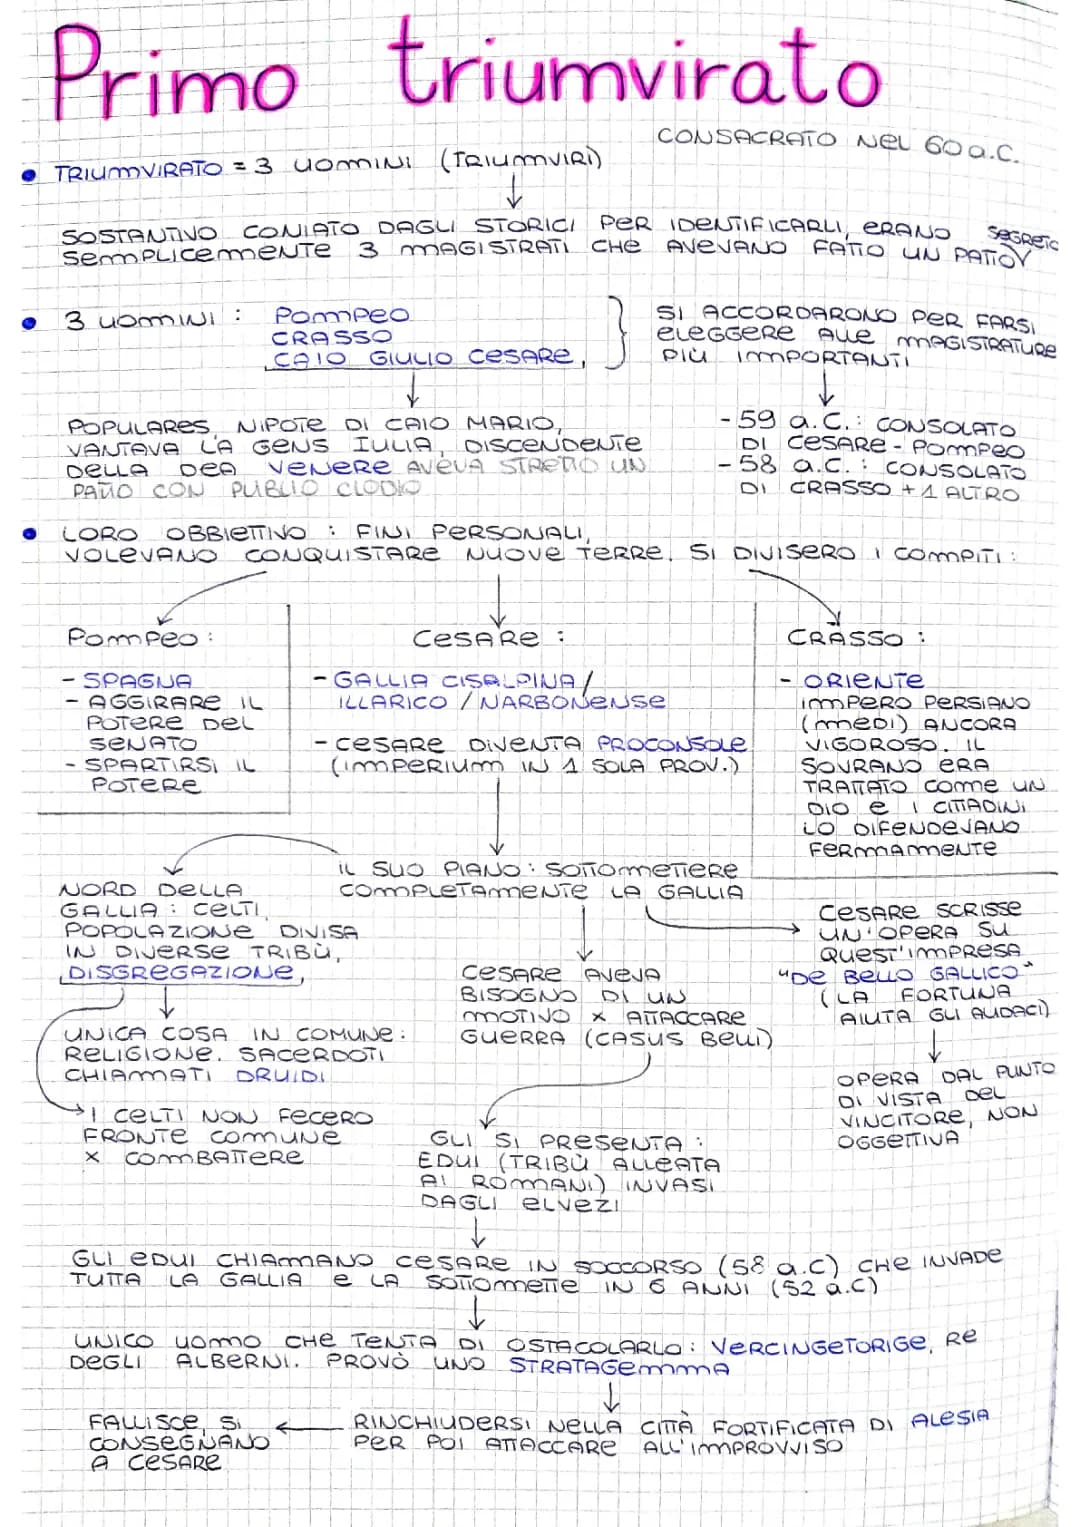 Primo triumvirato
CONSACRATO NEL 60 a.C.
• TRIUMVIRATO = 3 UOMINI (TRIUMVIRI)
SOSTANTIVO CONIATO DAGLI STORICI PER IDENTIFICARLI, ERANO
SEMPLICEMENTE 3 MAGISTRATI CHE AVEVANO FATTO UN PATTO SEGRETO
• 3 UOMINI : POMPEO
CRASSO
CAIO GIULIO CESARE,
SI ACCORDARONO PER FARSI
ELEGGERE ALLE MAGISTRATURE
PIÙ IMPORTANTI
POPULARES, NIPOTE DI CAIO MARIO,
VANTAVA LA GENS IULIA, DISCENDENTE
DELLA DEA VENERE AVEVA STRETTO UN
PATTO CON PUBLIO CLODIO
- 59 a.C. : CONSOLATO
DI CESARE - POMPEO
- 58 a.C. : CONSOLATO
DI CRASSO + 1 ALTRO
• LORO OBBIETTIVO : FINI PERSONALI,
VOLEVANO CONQUISTARE NUOVE TERRE. SI DIVISERO I COMPITI :
POMPEO :
- SPAGNA
- AGGIRARE IL
POTERE DEL
SENATO
- SPARTIRSI IL
POTERE
CESARE :
- GALLIA CISALPINA /
ILLARICO / NARBONENSE
- CESARE DIVENTA PROCONSOLE
(IMPERIUM IN 1 SOLA PROV.)
CRASSO :
- ORIENTE
IMPERO PERSIANO
(MEDI) ANCORA
VIGOROSO. IL
SOVRANO ERA
TRATTATO COME UN
DIO E I CITTADINI
LO DIFENDEVANO
FERMAMENTE
IL SUO PIANO : SOTTOMETTERE
COMPLETAMENTE LA GALLIA
NORD DELLA
GALLIA : CELTI,
POPOLAZIONE DIVISA
IN DIVERSE TRIBÙ,
DISGREGAZIONE,
UNICA COSA IN COMUNE :
RELIGIONE. SACERDOTI
CHIAMATI DRUIDI
I CELTI NON FECERO
FRONTE COMUNE
X COMBATTERE
CESARE AVEVA
BISOGNO DI UN
MOTIVO X ATTACCARE
GUERRA (CASUS BELLI)
CESARE SCRISSE
UN'OPERA SU
QUEST'IMPRESA
"DE BELLO GALLICO"
(LA FORTUNA
AIUTA GLI AUDACI)
OPERA DAL PUNTO
DI VISTA DEL
VINCITORE, NON
OGGETTIVA
GLI SI PRESENTA :
EDUI (TRIBÙ ALLEATA
AI ROMANI) INVASI
DAGLI ELVEZI
GLI EDUI CHIAMANO CESARE IN SOCCORSO (58 a.C) CHE INVADE
TUTTA LA GALLIA E LA SOTTOMETTE IN 6 ANNI (52 a.C)
UNICO UOMO CHE TENTA DI OSTACOLARLO : VERCINGETORIGE, RE
DEGLI ALBERNI. PROVÒ UNO STRATAGEMMMA
RINCHIUDERSI NELLA CITTÀ FORTIFICATA DI ALESIA
PER POI ATTACCARE ALL'IMPROVVISO
FALLISCE, SI
CONSEGNANO
A CESARE